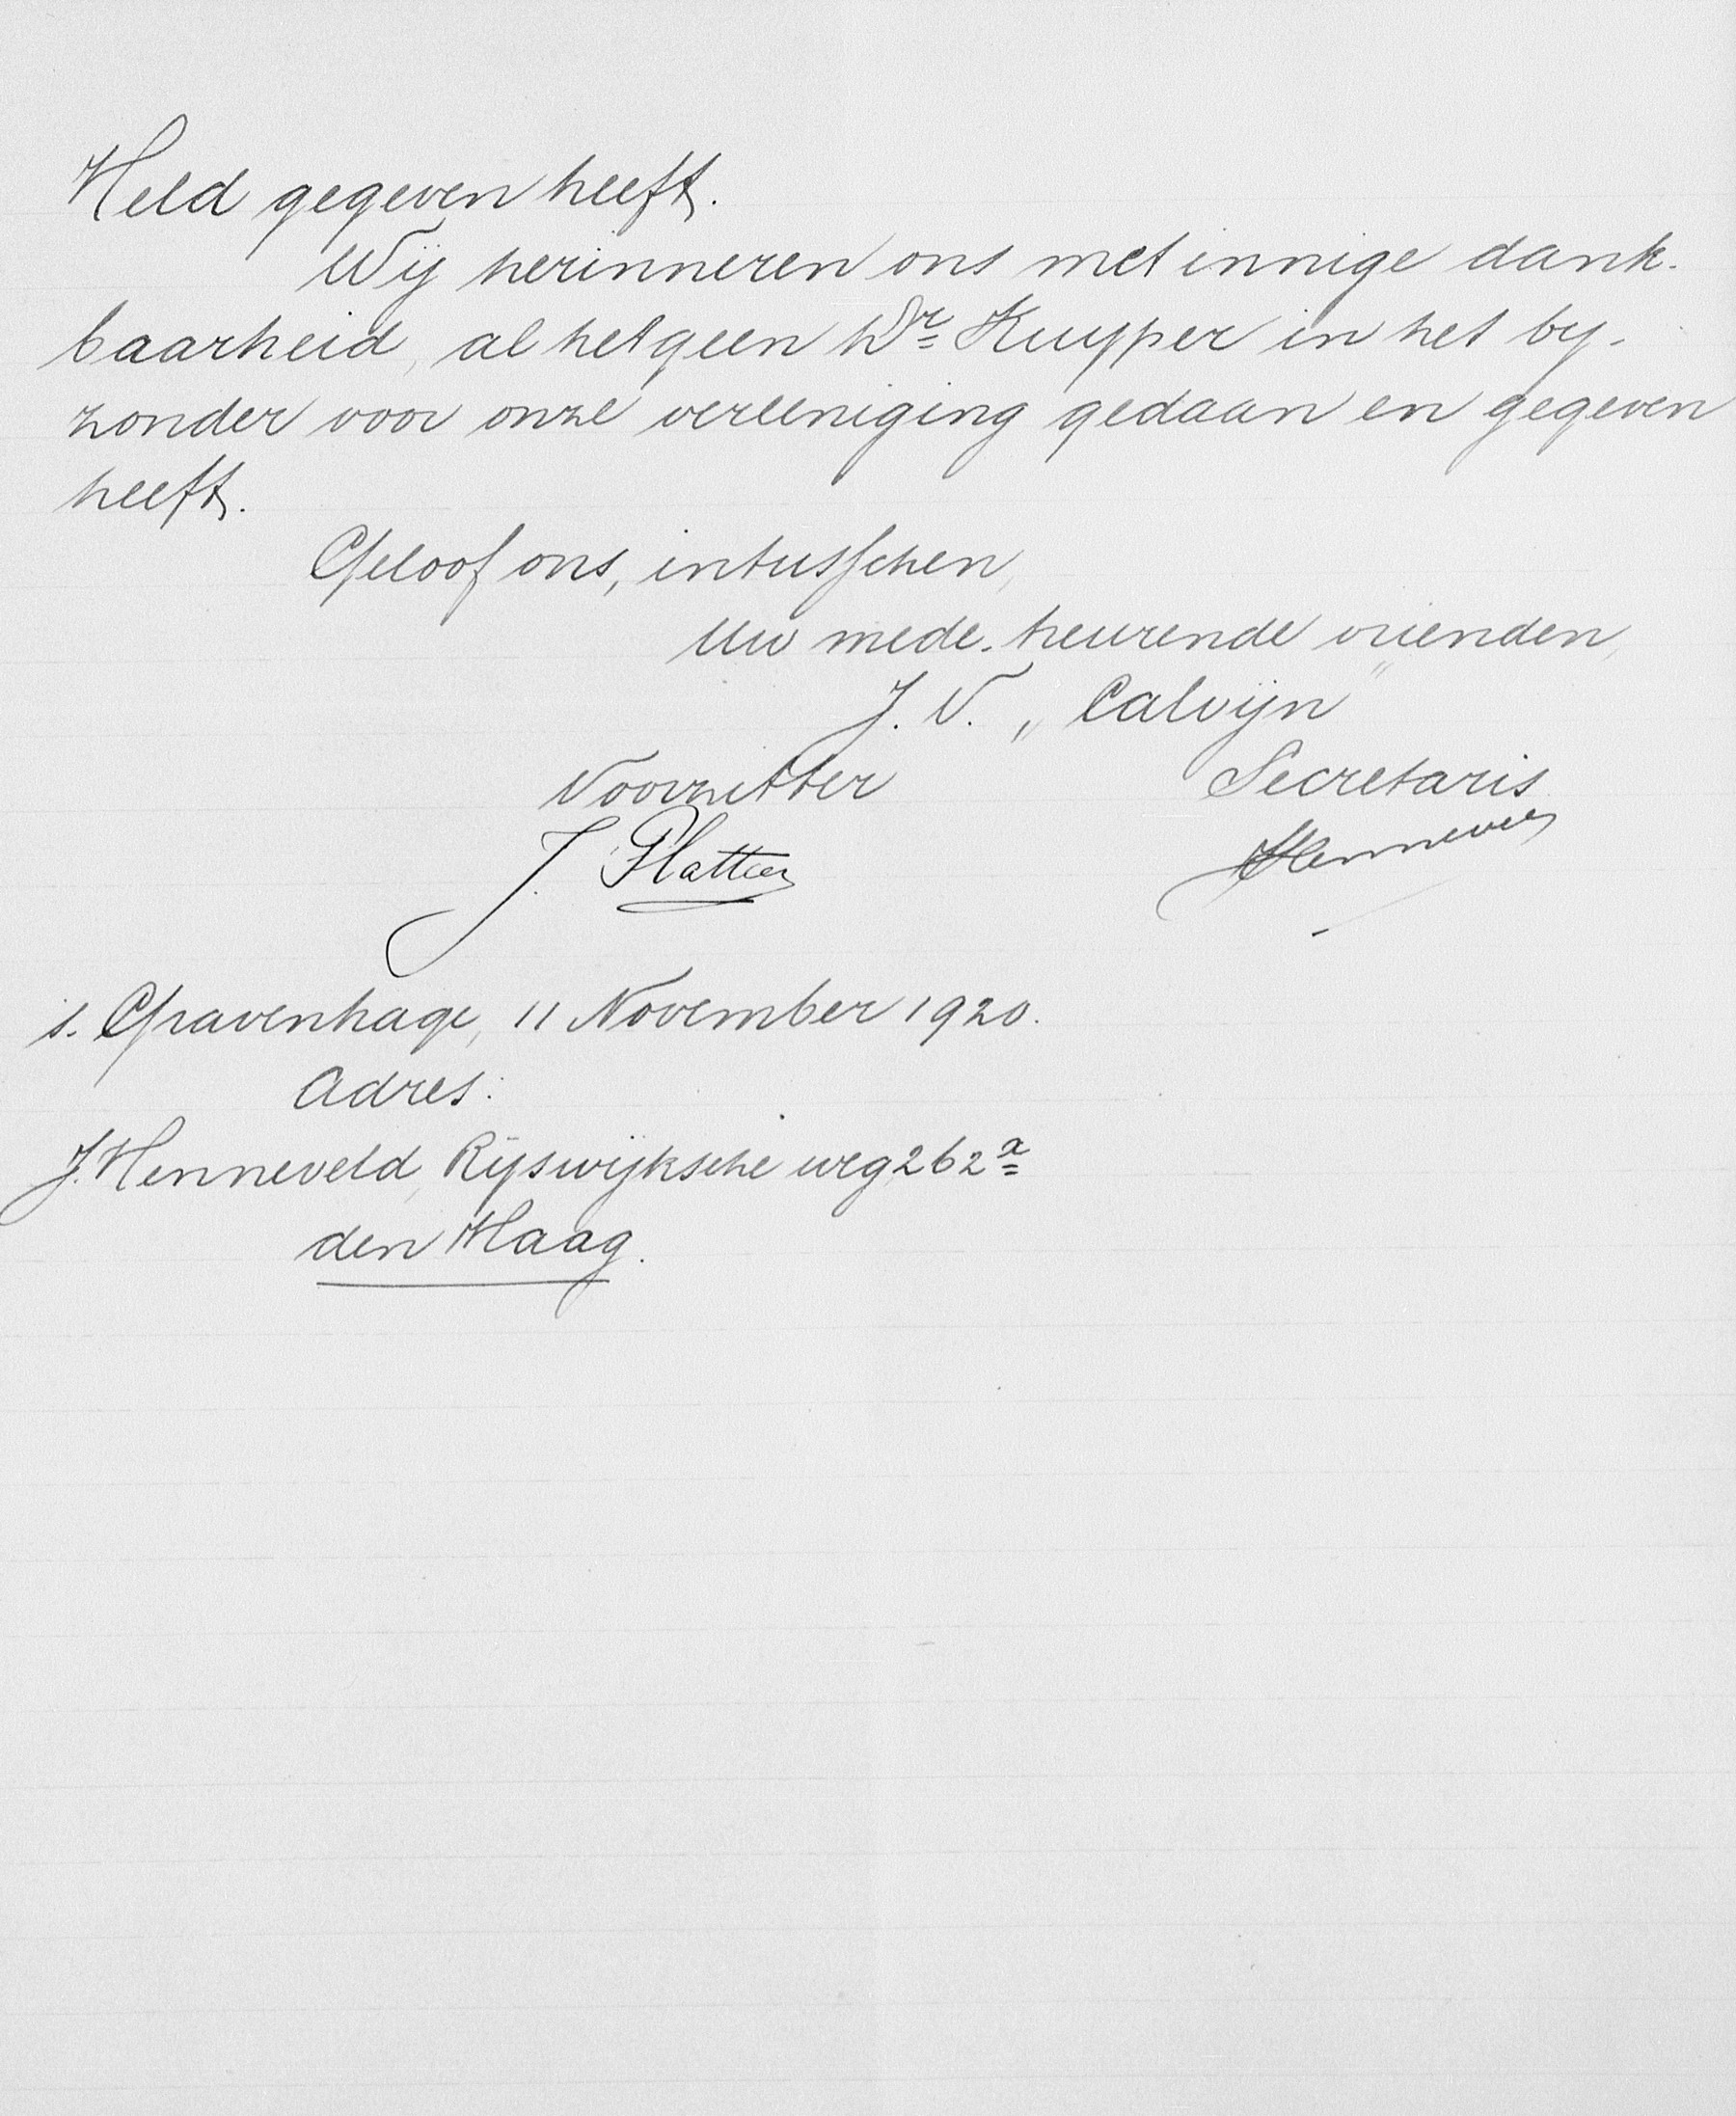 Held gegeven heeft.
Wij herinneren ons met innige dank-
baarheid, al hetgeen Dr. Kuyper in het by-
zonder voor onze vereeniging gedaan en gegeven
heeft.
Geloof ons, intusschen,
Uw mede-treurende vrienden,
J. V. „Calvijn"
Voorzitter Secretaris
J. Plattèr JHenneveld
s. Gravenhage, 11 November 1920.
Adres:
J. Henneveld, Rijswijksche weg 262a
den Haag.